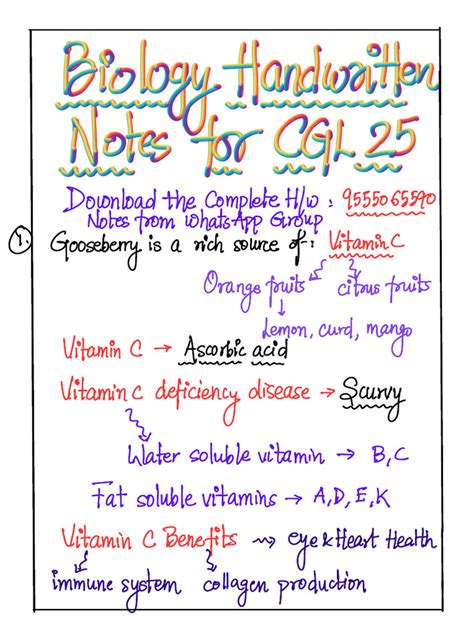 Biology Handwritten
Notes for CGL 25
Download the Complete H/w : 9555065590
Notes from WhatsApp Group
1. Gooseberry is a rich source of : Vitamin C
Orange fruits citrus fruits
Lemon, curd, mango
Vitamin C → Ascorbic acid
Vitamin C deficiency disease → Scurvy
Water soluble vitamin → B, C
Fat soluble vitamins → A, D, E, K
Vitamin C Benefits → eye & Heart Health
immune system collagen production